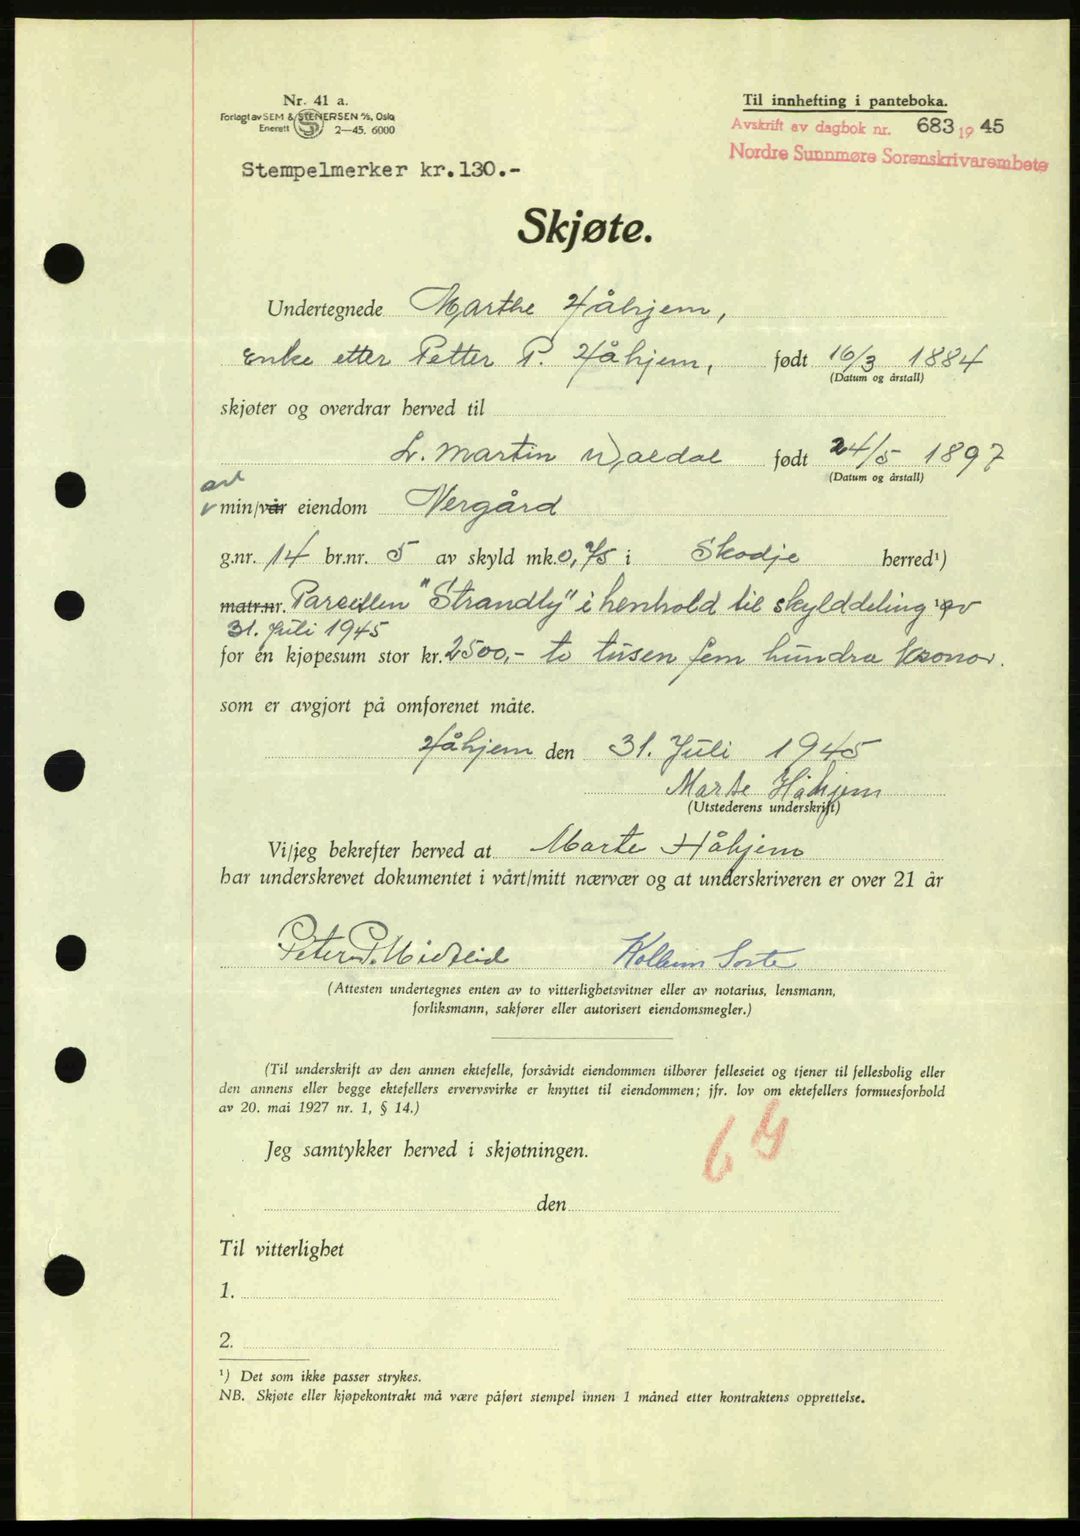 Nr. 41 a.
Forlagt av SEM & STENERSEN A/S, Oslo
Enerett 2—45. 6000
Til innhefting i panteboka.
Avskrift av dagbok nr. 683 1945
Nordre Sunnmøre Sorenskrivarembete
Stempelmerker kr.130.-
Skjøte.
Undertegnede Marthe Håhjem,
Enke etter Petter P. Håhjem, født 16/3 1884
(Datum og årstall)
skjøter og overdrar herved til
L. Martin født 24/5 1897
(Datum og årstall)
av
min/vår eiendom Nergård
g.nr. 14 br.nr. 5 av skyld mk. 0,75 i Skodje herred¹)
matr.nr. Parsellen "Strandly" i henhold til skylddeling av
31. Juli 1945
for en kjøpesum stor kr. 2500,- to tusen fem hundra kronor.
som er avgjort på omforenet måte.
Håhjem den 31. Juli 1945
Marte Håhjem
(Utstederens underskrift)
Vi/jeg bekrefter herved at Marte Håhjem
har underskrevet dokumentet i vårt/mitt nærvær og at underskriveren er over 21 år
Peter P. Midtlid
(Attesten undertegnes enten av to vitterlighetsvitner eller av notarius, lensmann,
forliksmann, sakfører eller autorisert eiendomsmegler.)
(Til underskrift av den annen ektefelle, forsåvidt eiendommen tilhører felleseiet og tjener til fellesbolig eller
den annens eller begge ektefellers ervervsvirke er knyttet til eiendommen; jfr. lov om ektefellers formuesforhold
av 20. mai 1927 nr. 1, § 14.)
Jeg samtykker herved i skjøtningen.
den
Til vitterlighet
1.
2.
¹) Det som ikke passer strykes.
NB. Skjøte eller kjøpekontrakt må være påført stempel innen 1 måned etter kontraktens opprettelse.